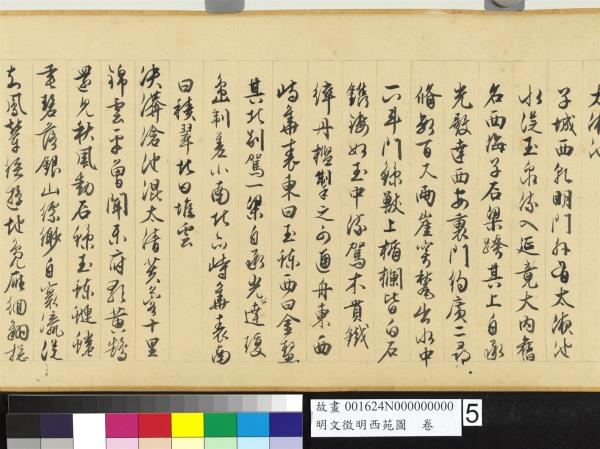 太液池
子城西乾明門外有太液池
水從玉泉流入延竟大內舊
名西海子石梁跨其上自承
光殿達西安裏門約廣二尋
脩數百尺兩崖穹甃出水中
一斗門鯨獸上楯欄皆白石
鐫鏤如玉中流駕木貫鐵
繂丹檻掣之可通舟東西
峙華表東曰玉蝀西曰金鰲
其北別駕一梁自承光達瓊
島制差小南北亦峙華表南
曰積翠北曰堆雲
泱漭滄池混太清芙蓉十里
錦雲平曾聞樂府歌黃鵠
還見秋風動石鯨玉蝀
垂碧落銀山縹緲自寰瀛從
知鳳輦經游地鳧雁徊翔總
故畫 001624N000000000
明文徵明西苑圖 卷
5